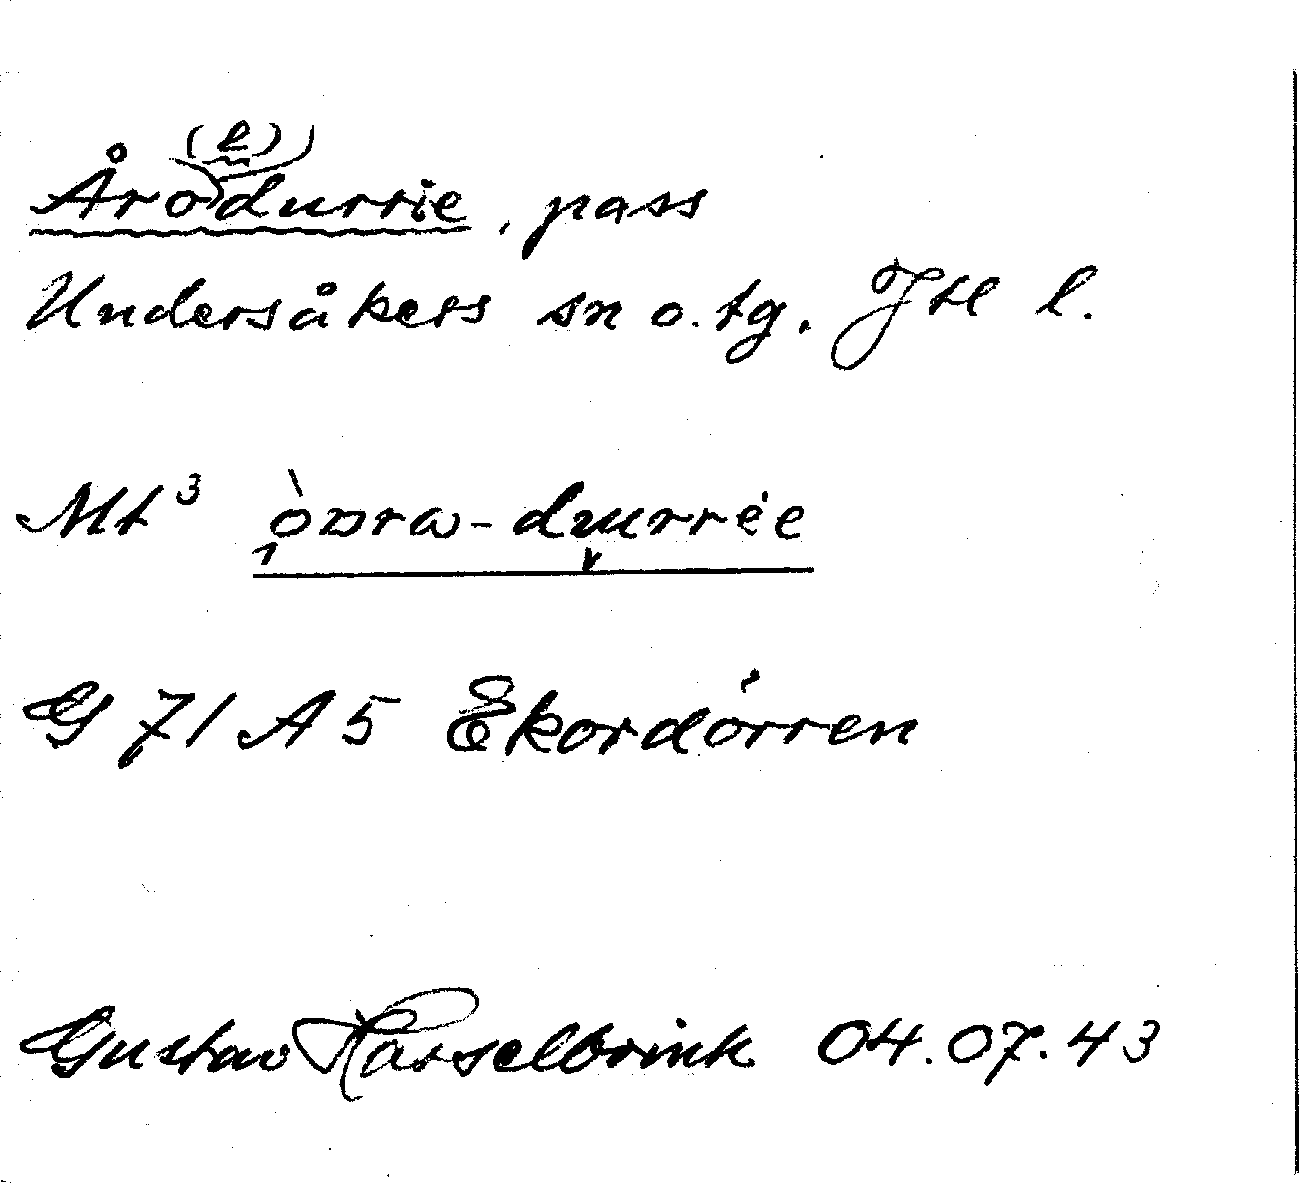 (e)
Årodurrie, pass
Undersåkers sn o. tg. Jtl l.
Mt³
G 71 A 5 Ekordörren
Gustav Hasselbrink 04.07.43